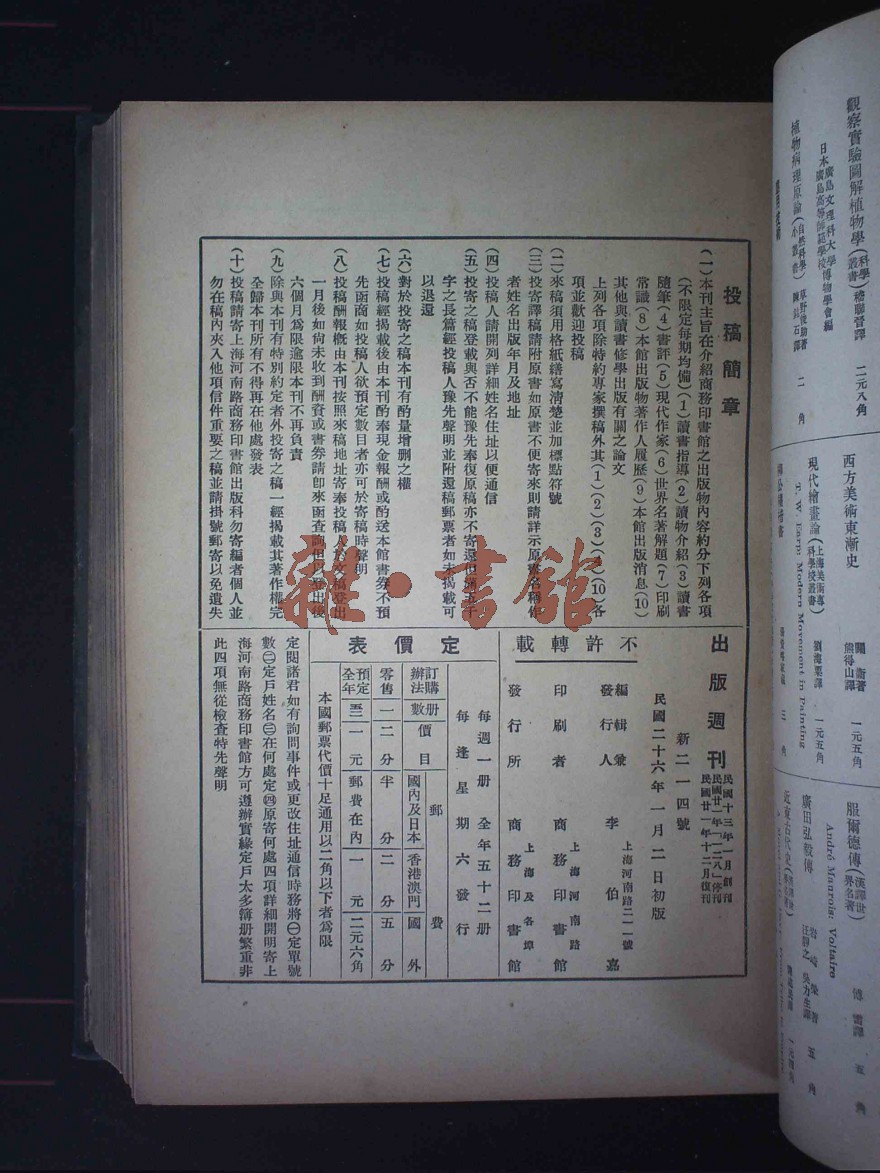 投稿簡章
(一)本刊主旨在介紹商務印書館之出版物內容約分下列各項
(不限定每期均備)(1)讀書指導(2)讀物介紹(3)讀書
隨筆(4)書評(5)現代作家(6)世界名著解題(7)印刷
常識(8)本館出版物著作人履歷(9)本館出版消息(10)
其他與讀書修學出版有關之論文
上列各項除特約專家撰稿外其(1)(2)(3)(10)各
項並歡迎投稿
(二)來稿須用格紙繕寫清楚並加標點符號
(三)投寄譯稿請附原書如原書不便寄來則請詳示原書名稱作
者姓名出版年月及地址
(四)投稿人請開列詳細姓名住址以便通信
(五)投寄之稿登載與否不能豫先奉復原稿亦不寄還但
字之長篇經投稿人豫先聲明並附還稿郵票者如未揭載可
以退還
(六)對於投寄之稿本刊有酌量增删之權
(七)投稿經揭載後由本刊酌奉現金報酬或酌送本館書券不預
先函商如投稿人欲預定數目者亦可於寄稿時聲明
(八)投稿酬報概由本刊按照來稿地址寄奉投稿人於文稿登出
一月後如尙未收到酬資或書券請卽來函查詢但以登出後
六個月爲限逾限本刊不再負責
(九)除與本刊有特別約定者外投寄之稿一經揭載其著作權完
全歸本刊所有不得再在他處發表
(十)投稿請寄上海河南路商務印書館出版科勿寄編者個人並
勿在稿內夾入他項信件重要之稿並請掛號郵寄以免遺失
出版週刊
民國十三年一月創刊
民國廿一年一二八停刊
民國廿一年十二月復刊
新二一四號
民國二十六年一月二日初版
不許轉載
編輯兼發行人 李伯嘉
上海河南路二一一號
印刷者 商務印書館
上海河南路
發行所 商務印書館
上海及各埠
定價表
每週一册 全年五十二册
每逢星期六發行
訂購辦法 册數 價目 郵費
國內及日本 香港澳門 國外
零售 一 二分 半分 二分 五分
預定全年 五二 一元 郵費在內 一元 二元六角
本國郵票代價十足通用以二角以下者爲限
定閱諸君如有詢問事件或更改住址通信時務將㊀定單號
數㊁定戶姓名㊂在何處定㊃原寄何處四項詳細開明寄上
海河南路商務印書館方可遵辦實緣定戶太多簿册繁重非
此四項無從檢查特先聲明
雜·書館
觀察實驗圖解植物學(科學叢書) 二元八角
日本廣島文理科大學
廣島高等師範學校博物學會編
植物病理原論(自然科學小叢書) 二角
西方美術東漸史 關衞著
熊得山譯 一元五角
現代繪畫論(上海美術專科學校叢書) 劉海粟譯 一元五角
T. W. Earp: Modern Movement in Painting
服爾德傳(漢譯世界名著) 傅雷譯 五角
André Maurois: Voltaire
廣田弘毅傳 五角
近東古代史